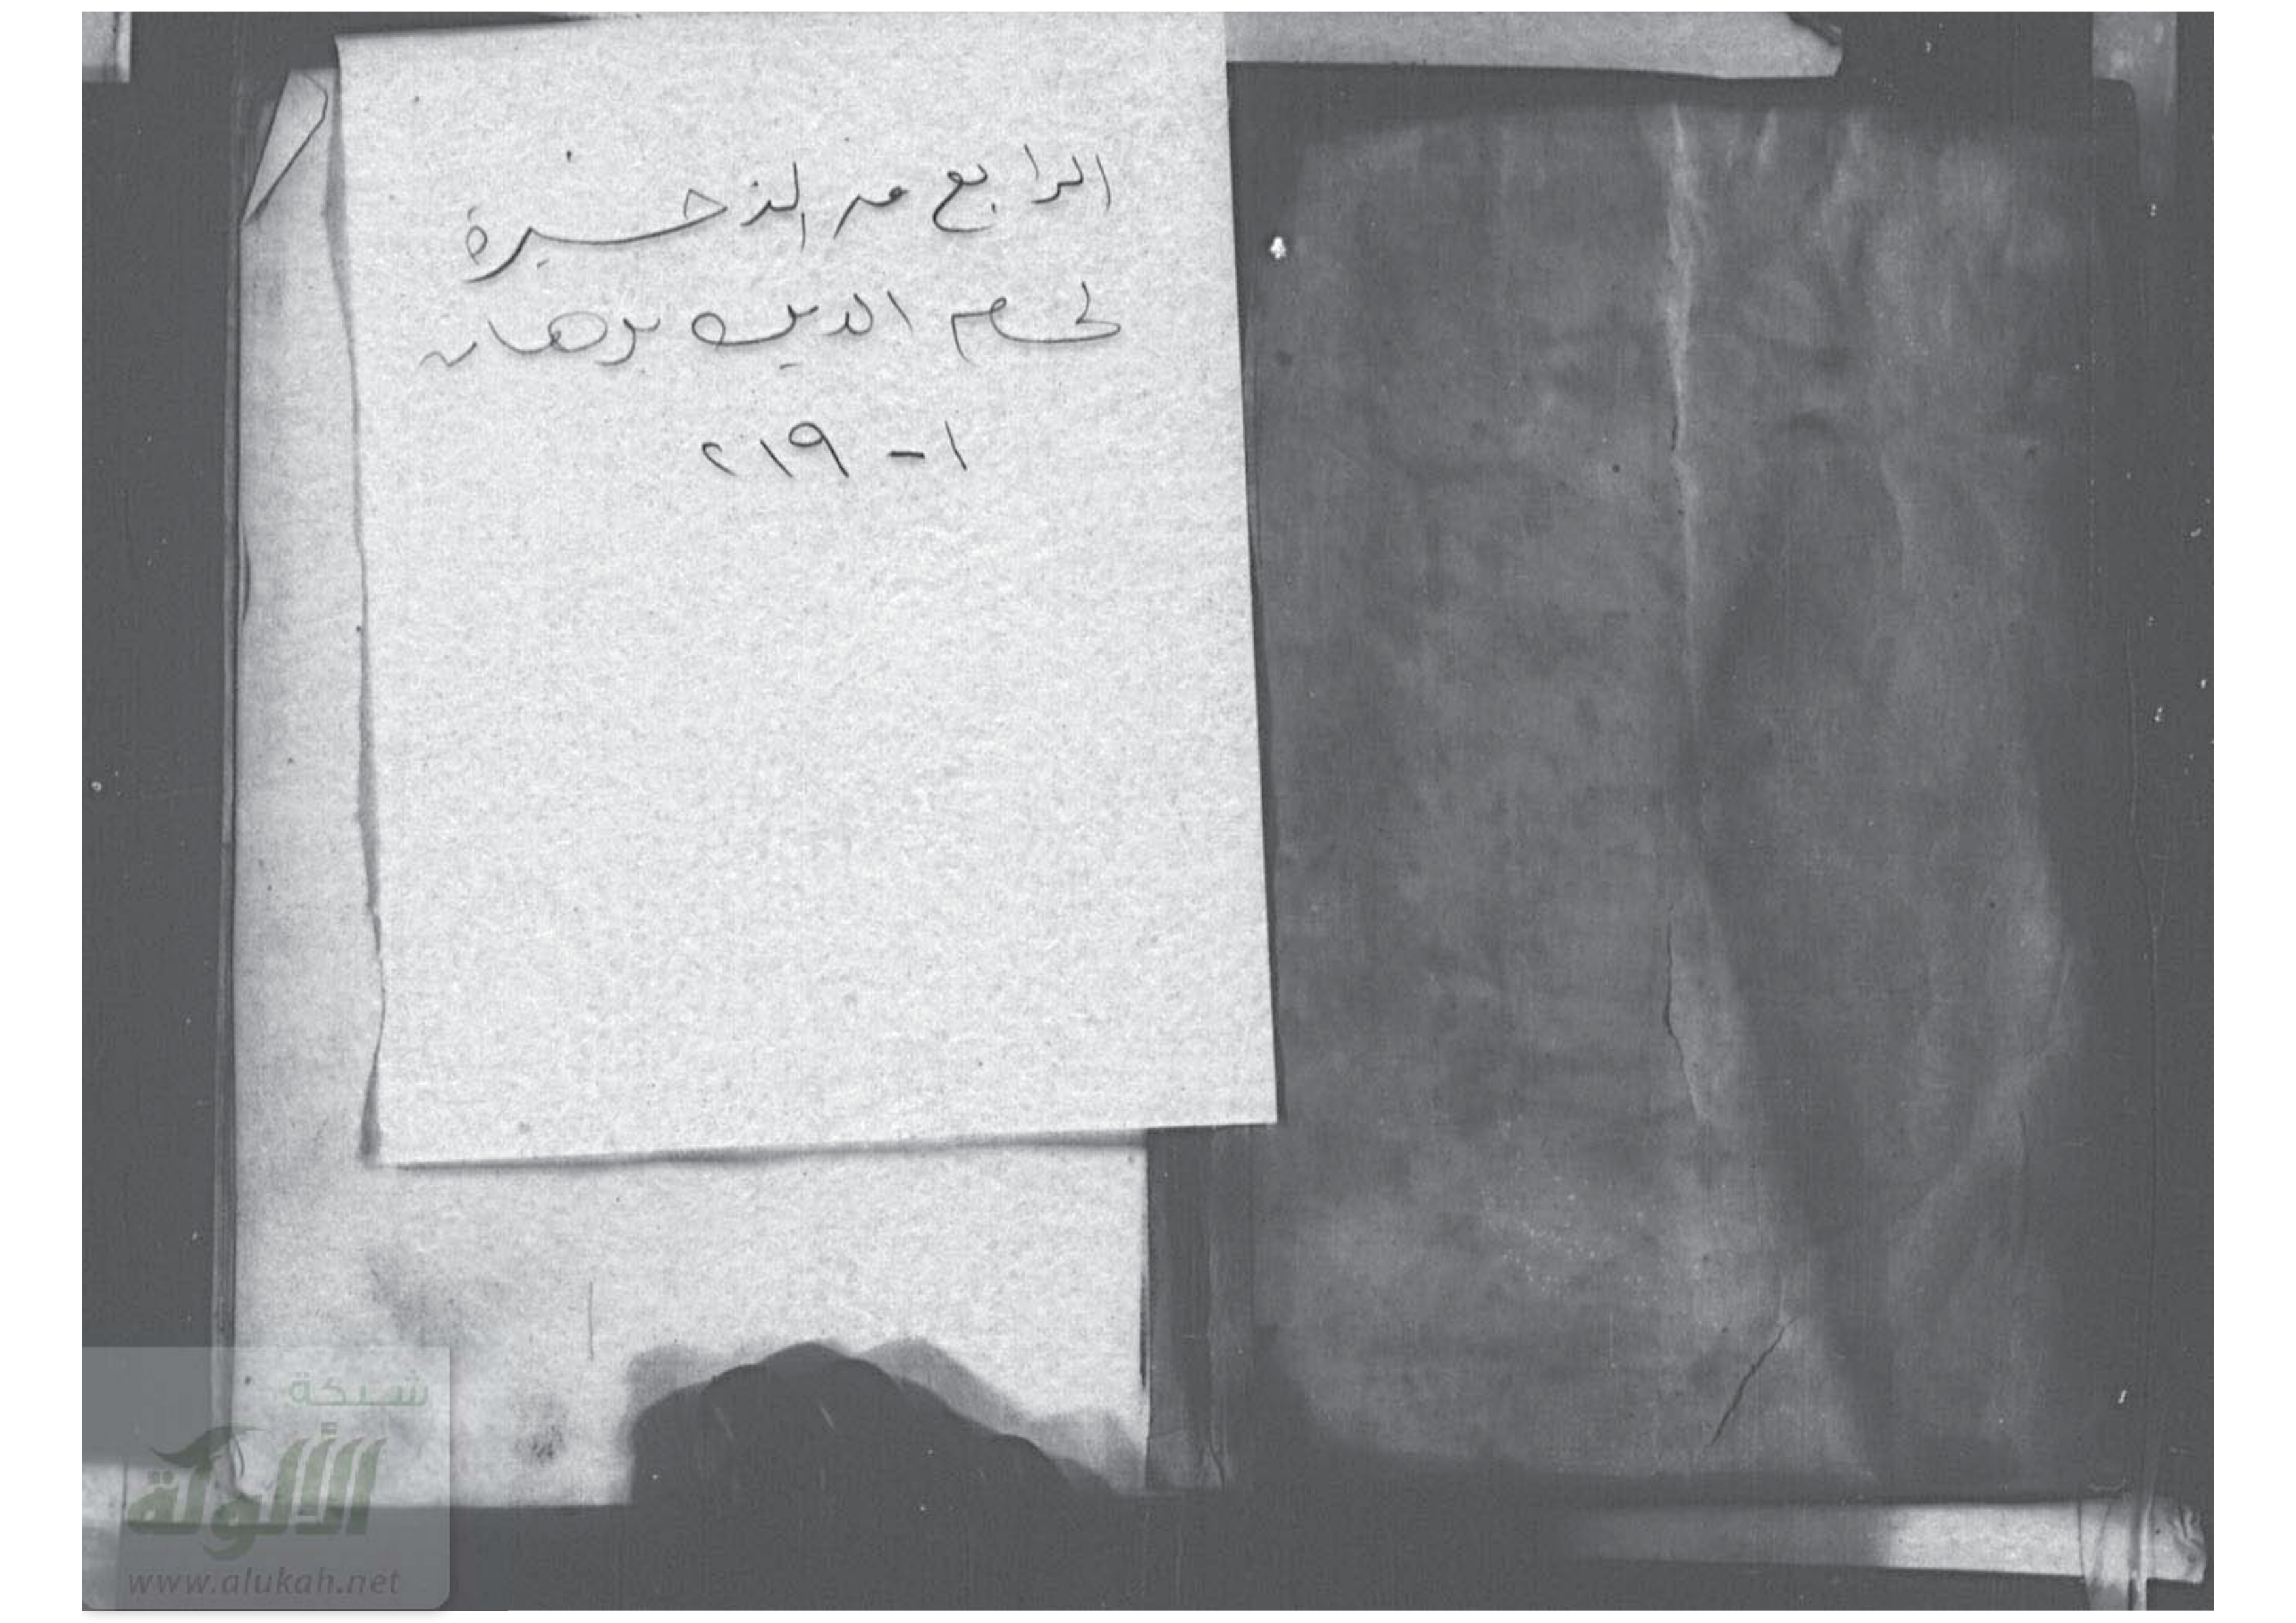 الرابع من الذخيرة
لحسام الدين برهان
١ - ٢١٩
شبكة
الألوكة
www.alukah.net